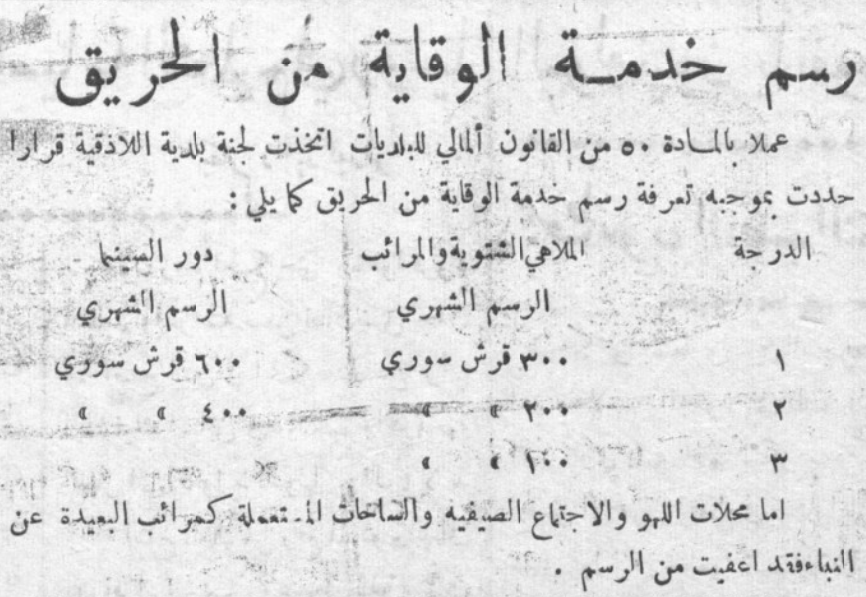 رسم خدمـة الوقاية من الحريق
عملا بالمـادة ٥٠ من القانون ألمالي للبلديات اتخذت لجنة بلدية اللاذقية قرارا
حددت بموجبه تعرفة رسم خدمة الوقاية من الحريق كما يلي :
الدرجة الملاهي الشتوية والمرائب دور السينما
الرسم الشهري الرسم الشهري
١ ٣٠٠ قرش سوري ٦٠٠ قرش سوري
٢ ٢٠٠ » » ٤٠٠ » »
٣ ١٠٠ » »
اما محلات اللهو والاجتماع الصيفيه والساحات المـتعملة كمرائب البعيدة عن
النباء فقد اعفيت من الرسم .